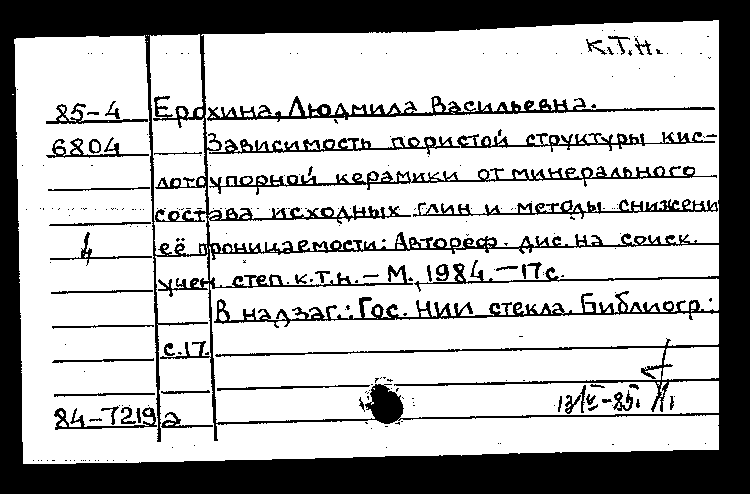 К.Т.Н.
85-4 Ерохина, Людмила Васильевна.
6804 Зависимость пористой структуры кис-
лотоупорной керамики от минерального
состава исходных глин и методы снижени
4 её проницаемости: Автореф. дис. на соиск.
учен степ. к.т.н. – М., 1984. – 17 с.
В надзаг.: Гос. НИИ стекла. Библиогр.:
с.17.
84-7219 а